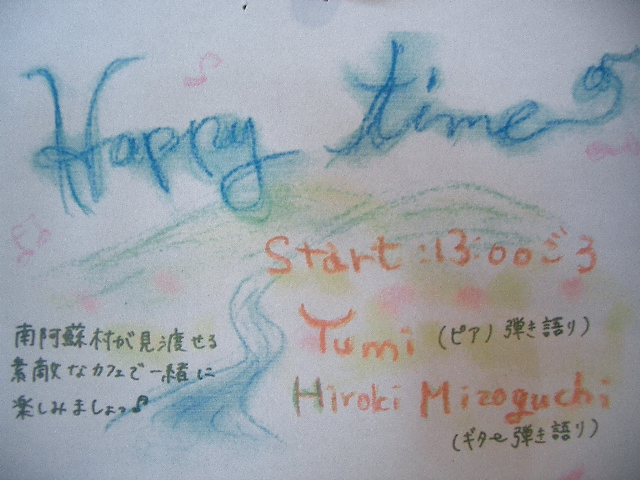 Happy time
Start:13:00ごろ
Yumi (ピアノ弾き語り)
Hiroki Mizoguchi
(ギター弾き語り)
南阿蘇村が見渡せる
素敵なカフェで一緒に
楽しみましょっ♪